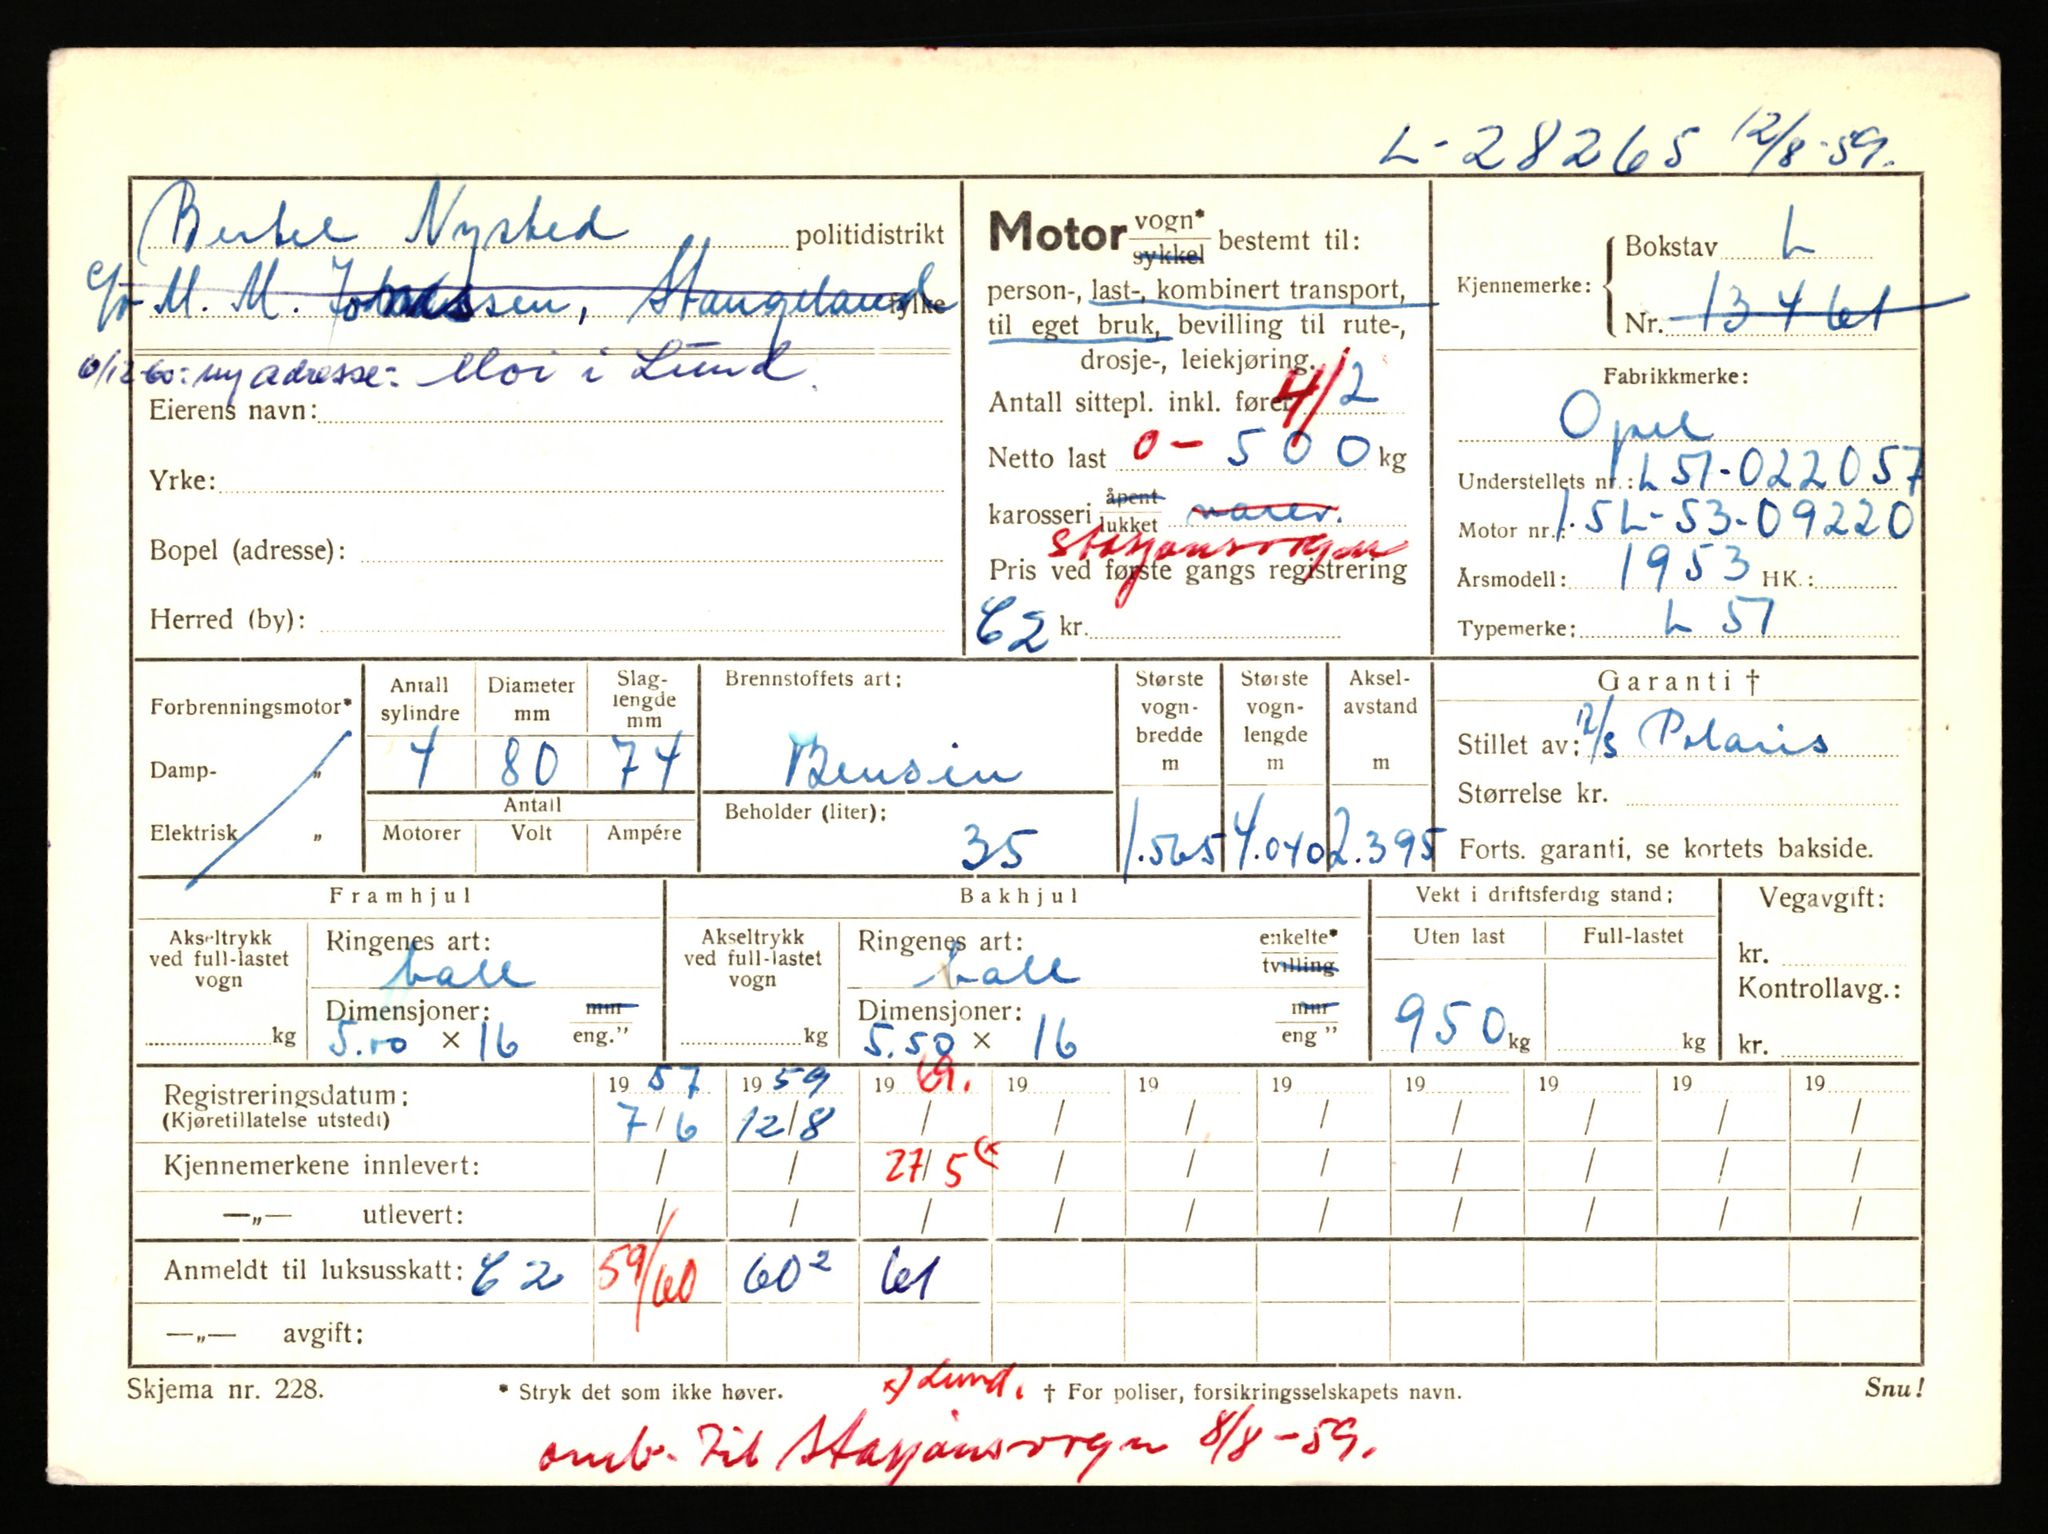 L-28265 12/8-59.
Bertel Nysted politidistrikt
c/o M. M. Johnsen, Stangeland fylke
10/12-60: ny adresse: Moi i Lund.
Eierens navn:
Yrke:
Bopel (adresse):
Herred (by):
Motor vogn* sykkel bestemt til:
person-, last-, kombinert transport,
til eget bruk, bevilling til rute-,
drosje-, leiekjøring.
Antall sittepl. inkl. fører 4/2
Netto last 0 - 500 kg
karosseri åpent lukket varev.
Stasjonsvogn
Pris ved første gangs registrering
62 kr.
Kjennemerke: Bokstav L
Nr. 13461
Fabrikkmerke:
Opel
Understellets nr.: L51-022057
Motor nr.: 1.5L-53-09220
Årsmodell: 1953 HK.:
Typemerke: L 51
Forbrenningsmotor*
Damp- „
Elektrisk „
Antall sylindre
Diameter mm
Slag-lengde mm
4 80 74
Antall
Motorer Volt Ampére
Brennstoffets art:
Bensin
Beholder (liter):
35
Største vogn-bredde m
1.565
Største vogn-lengde m
4.040
Aksel-avstand m
2.395
Garanti †
Stillet av: 12/8 Polaris
Størrelse kr.
Forts. garanti, se kortets bakside.
Framhjul
Akseltrykk ved full-lastet vogn
kg
Ringenes art:
ball
Dimensjoner: mm
5.00 × 16 eng.”
Bakhjul
Akseltrykk ved full-lastet vogn
kg
Ringenes art: enkelte*
ball tvilling
Dimensjoner: mm
5.50 × 16 eng ”
Vekt i driftsferdig stand:
Uten last Full-lastet
950 kg kg
Vegavgift:
kr.
Kontrollavg.:
kr.
Registreringsdatum: 19 57 19 59 19 61. 19 19 19 19 19 19 19
(Kjøretillatelse utstedt) 7/6 12/8 / / / / / / / /
Kjennemerkene innlevert: / / 27/5 (x / / / / / / /
—„— utlevert: / / / / / / / / / /
Anmeldt til luksusskatt: 62 59/60 60² 61
—„— avgift:
Skjema nr. 228. * Stryk det som ikke høver. x) Lund. † For poliser, forsikringsselskapets navn. Snu!
omb. til Stasjonsvogn 8/8-59.